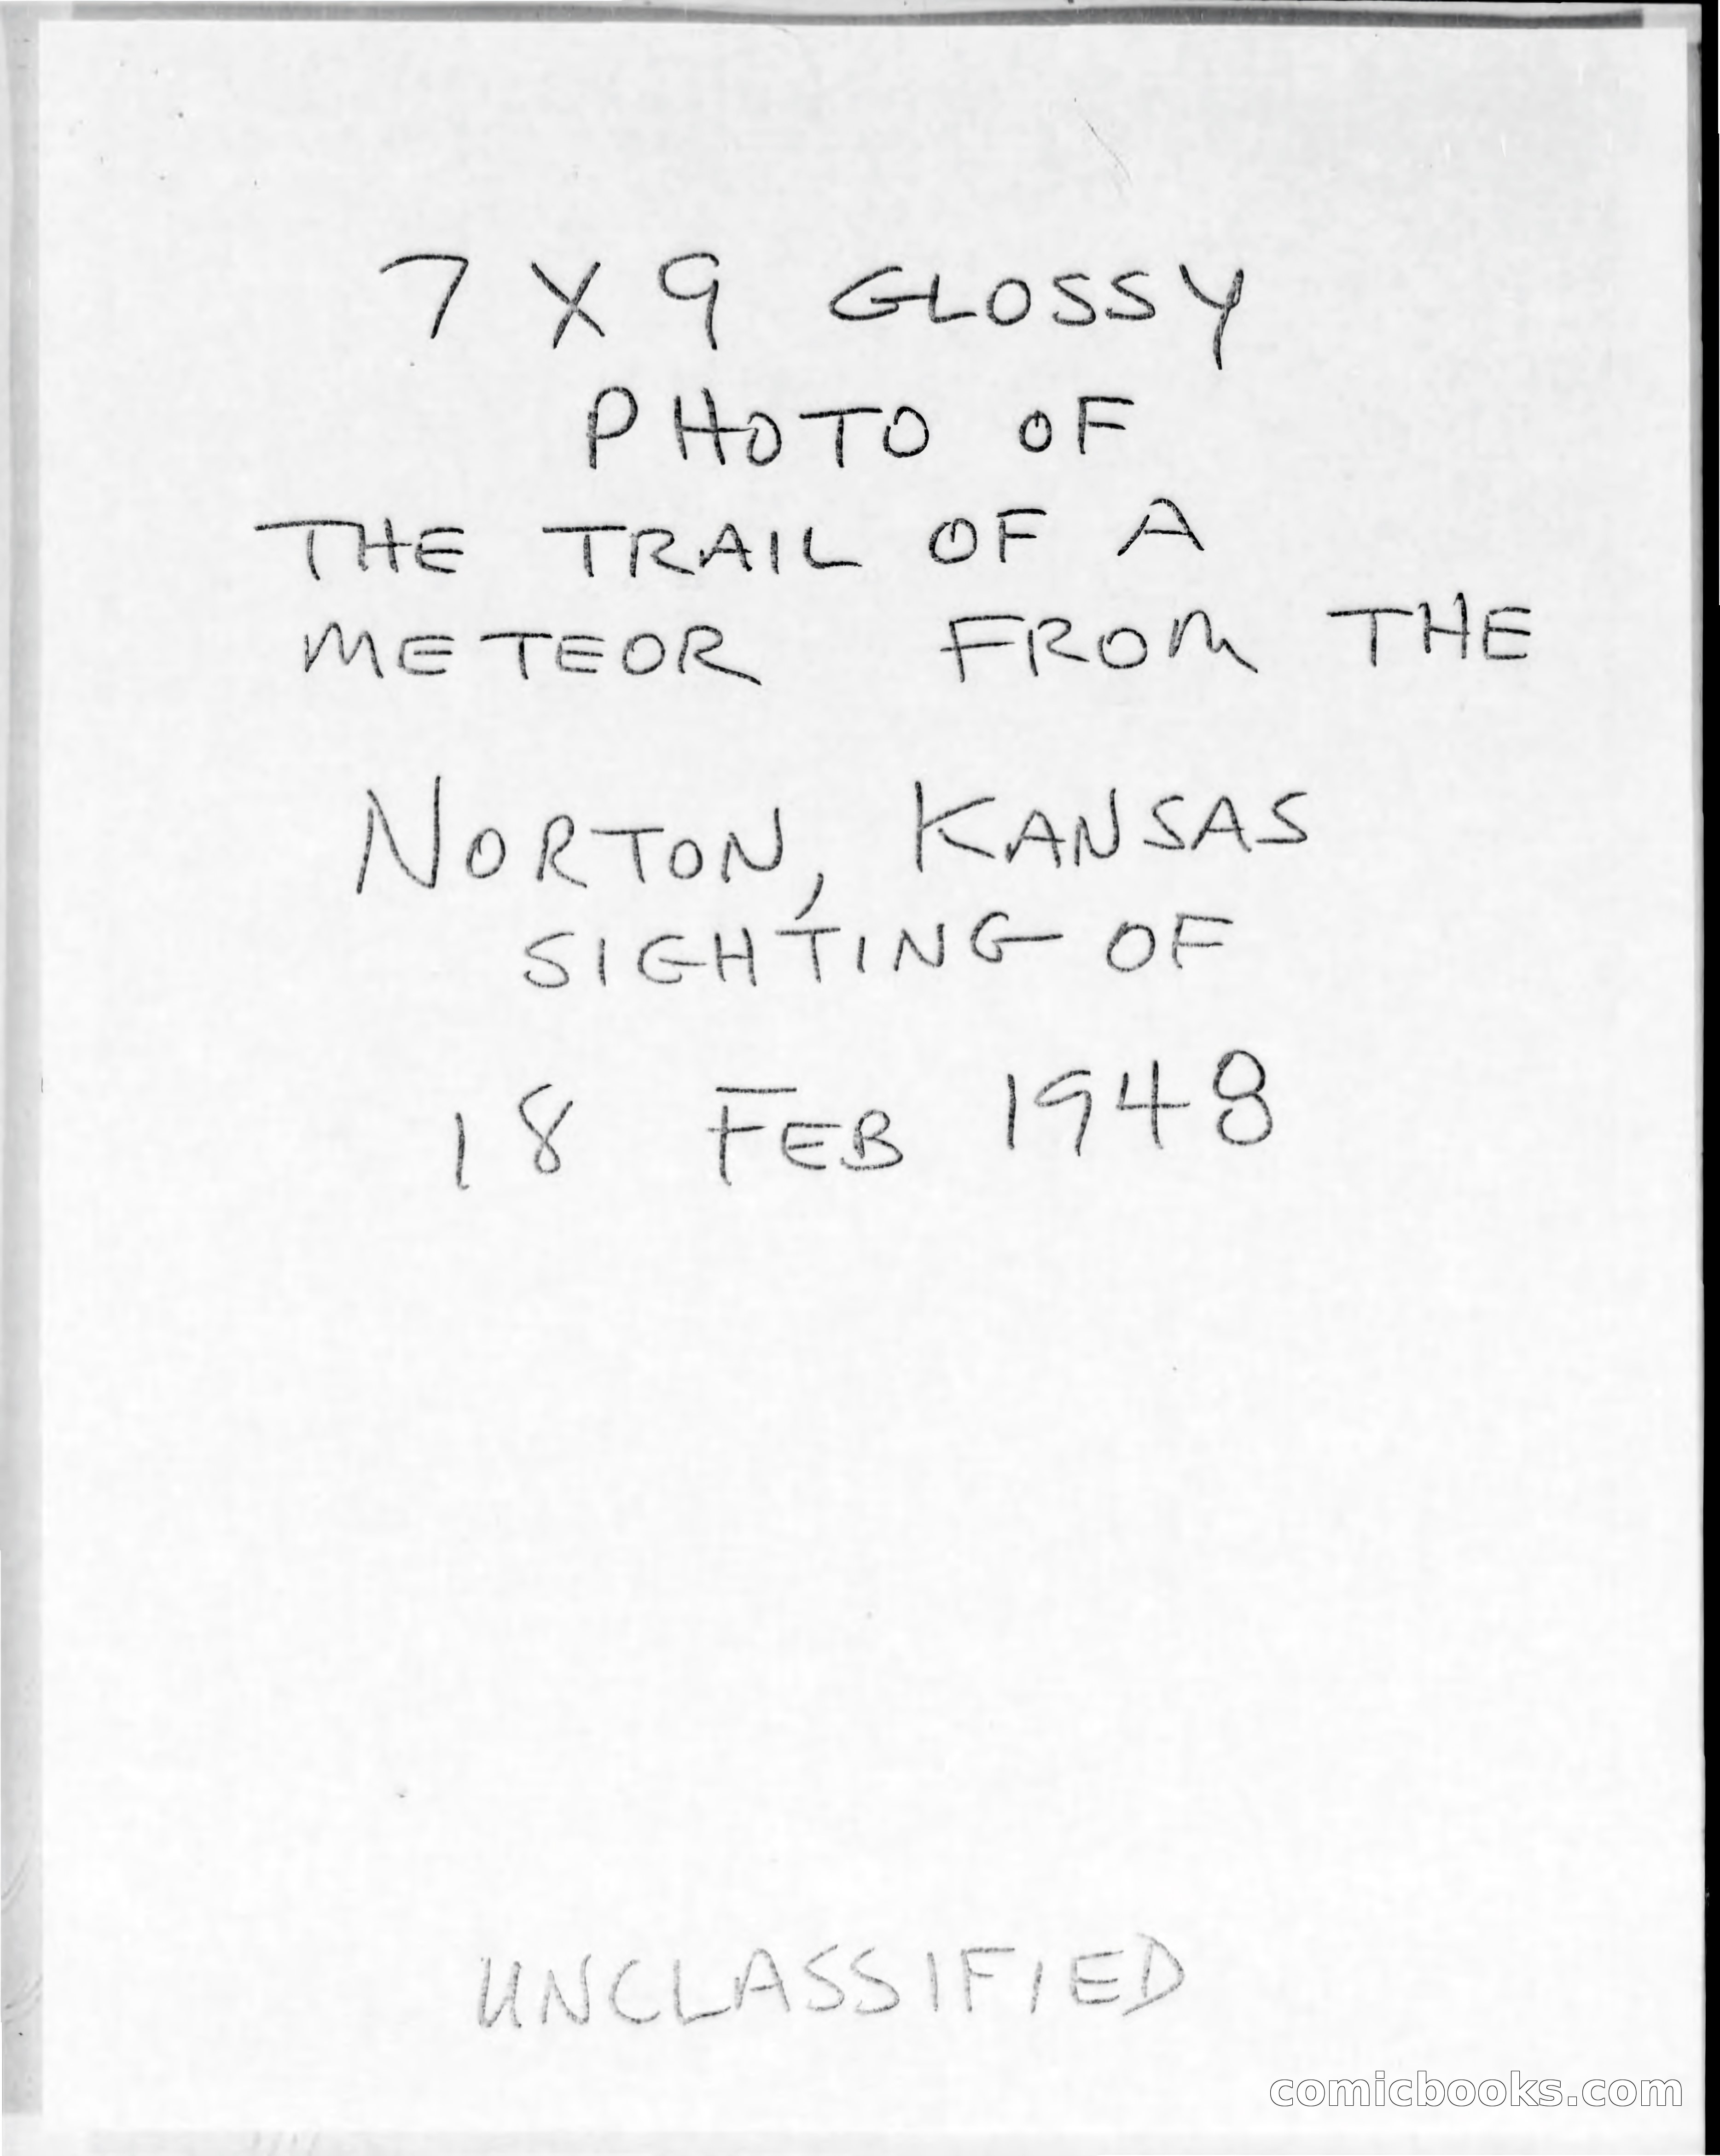 7 X 9 GLOSSY
PHOTO OF
THE TRAIL OF A
METEOR FROM THE
NORTON, KANSAS
SIGHTING OF
18 FEB 1948
UNCLASSIFIED
comicbooks.com